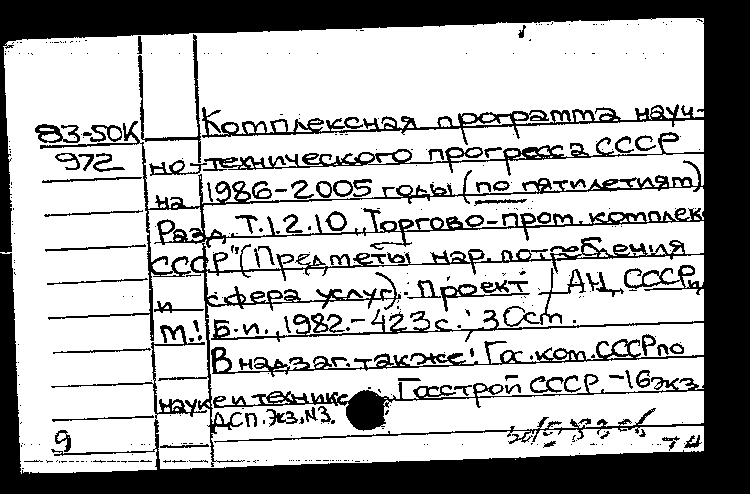 83-50К Комплексная программа науч-
972 но-технического прогресса СССР
на 1986-2005 годы (по пятилетиям)
Разд. Т.1.2.10 „Торгово-пром. комплекс
СССР" (Предметы нар. потребления
и сфера услуг). Проект / АН СССР.
М.: Б.и., 1982.-423с.; 30см.
В надзаг. также: Гос.ком. СССР по
науке и технике. Госстрой СССР. -16экз.
ДСП. Экз. №3.
9